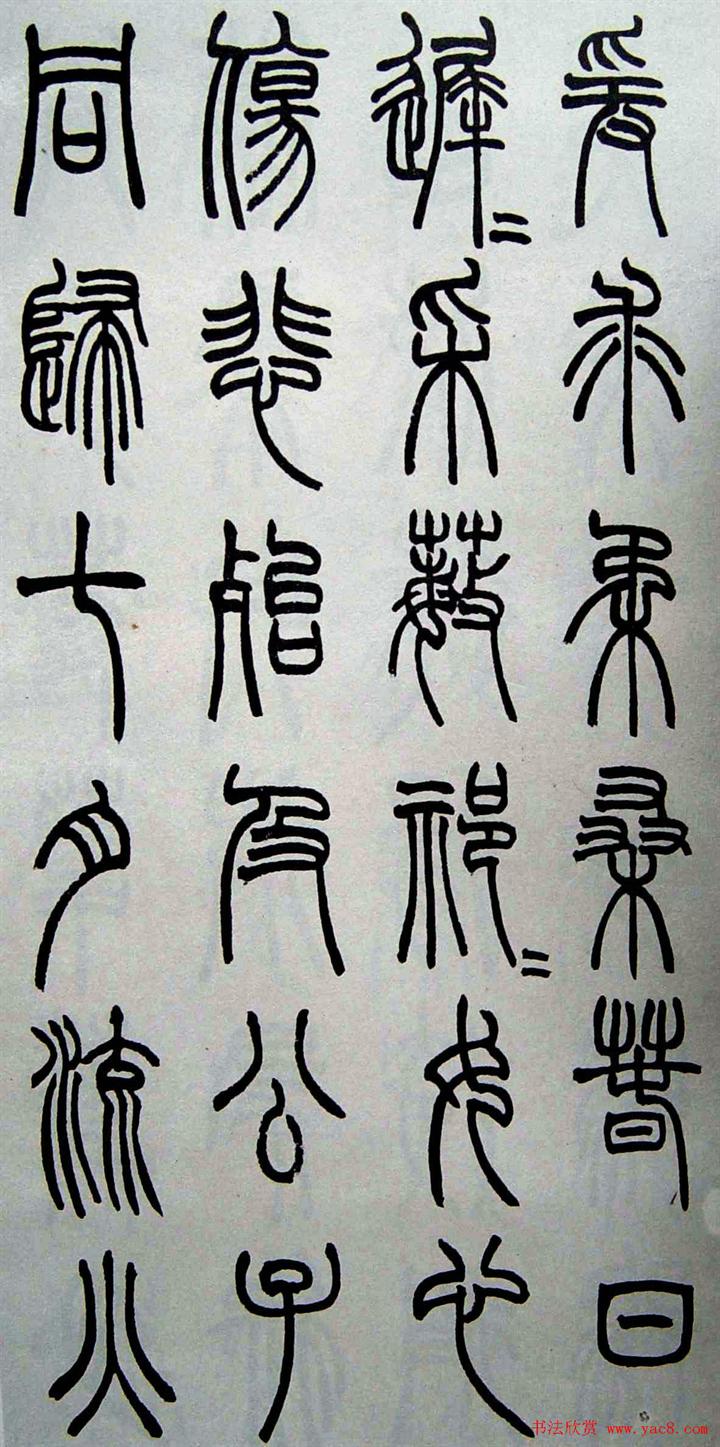 爰求柔桑春日
遲=采蘩祁=女心
傷悲殆及公子
同歸七月流火
书法欣赏 www.yac8.com